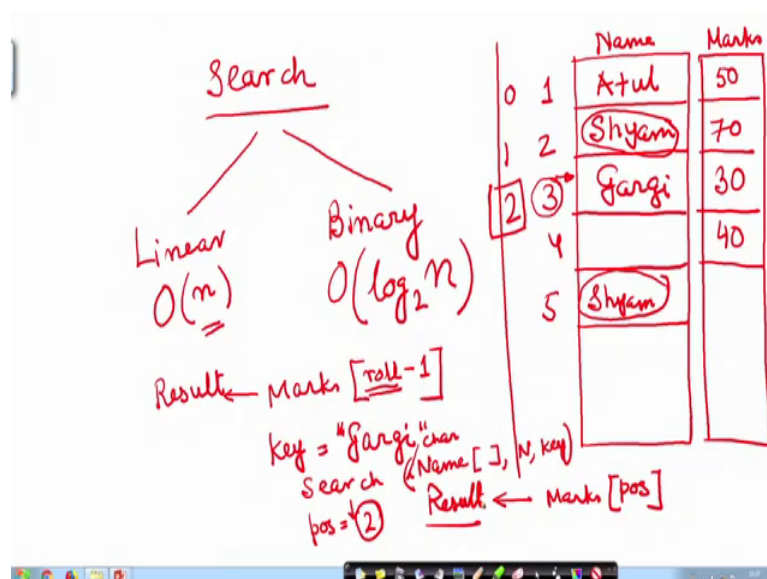 Search
Linear
O(n)
Binary
O(log₂n)
Result ← Marks [roll-1]
Key = "Gargi"
Search (char Name[ ], N, Key)
pos = 2
Result ← Marks [pos]
Name Marks
0 1 Atul 50
1 2 Shyam 70
2 3 Gargi 30
4 40
5 Shyam